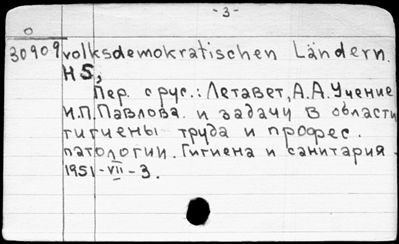 -3-
O
30909 volksdemokratischen Ländern.
HS,
Пер. с рус.: Летавет, А.А. Учение
И.П. Павлова и задачи в области
гигиены труда и профес.
патологии. Гигиена и санитария.
1951-VII-3.